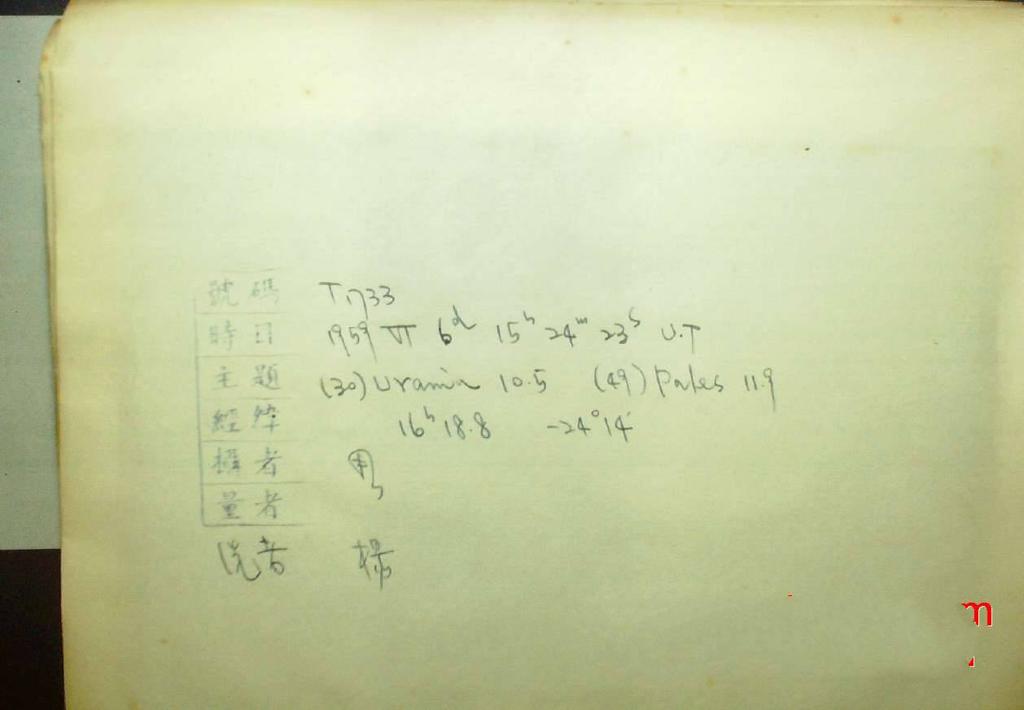 號碼 T1733
時日 1959 VI 6d 15h 24m 23s U.T
主題 (30) Urania 10.5 (49) Pales 11.9
經緯 16h 18.8 -24°14'
攝者
量者
洗者 楊
m